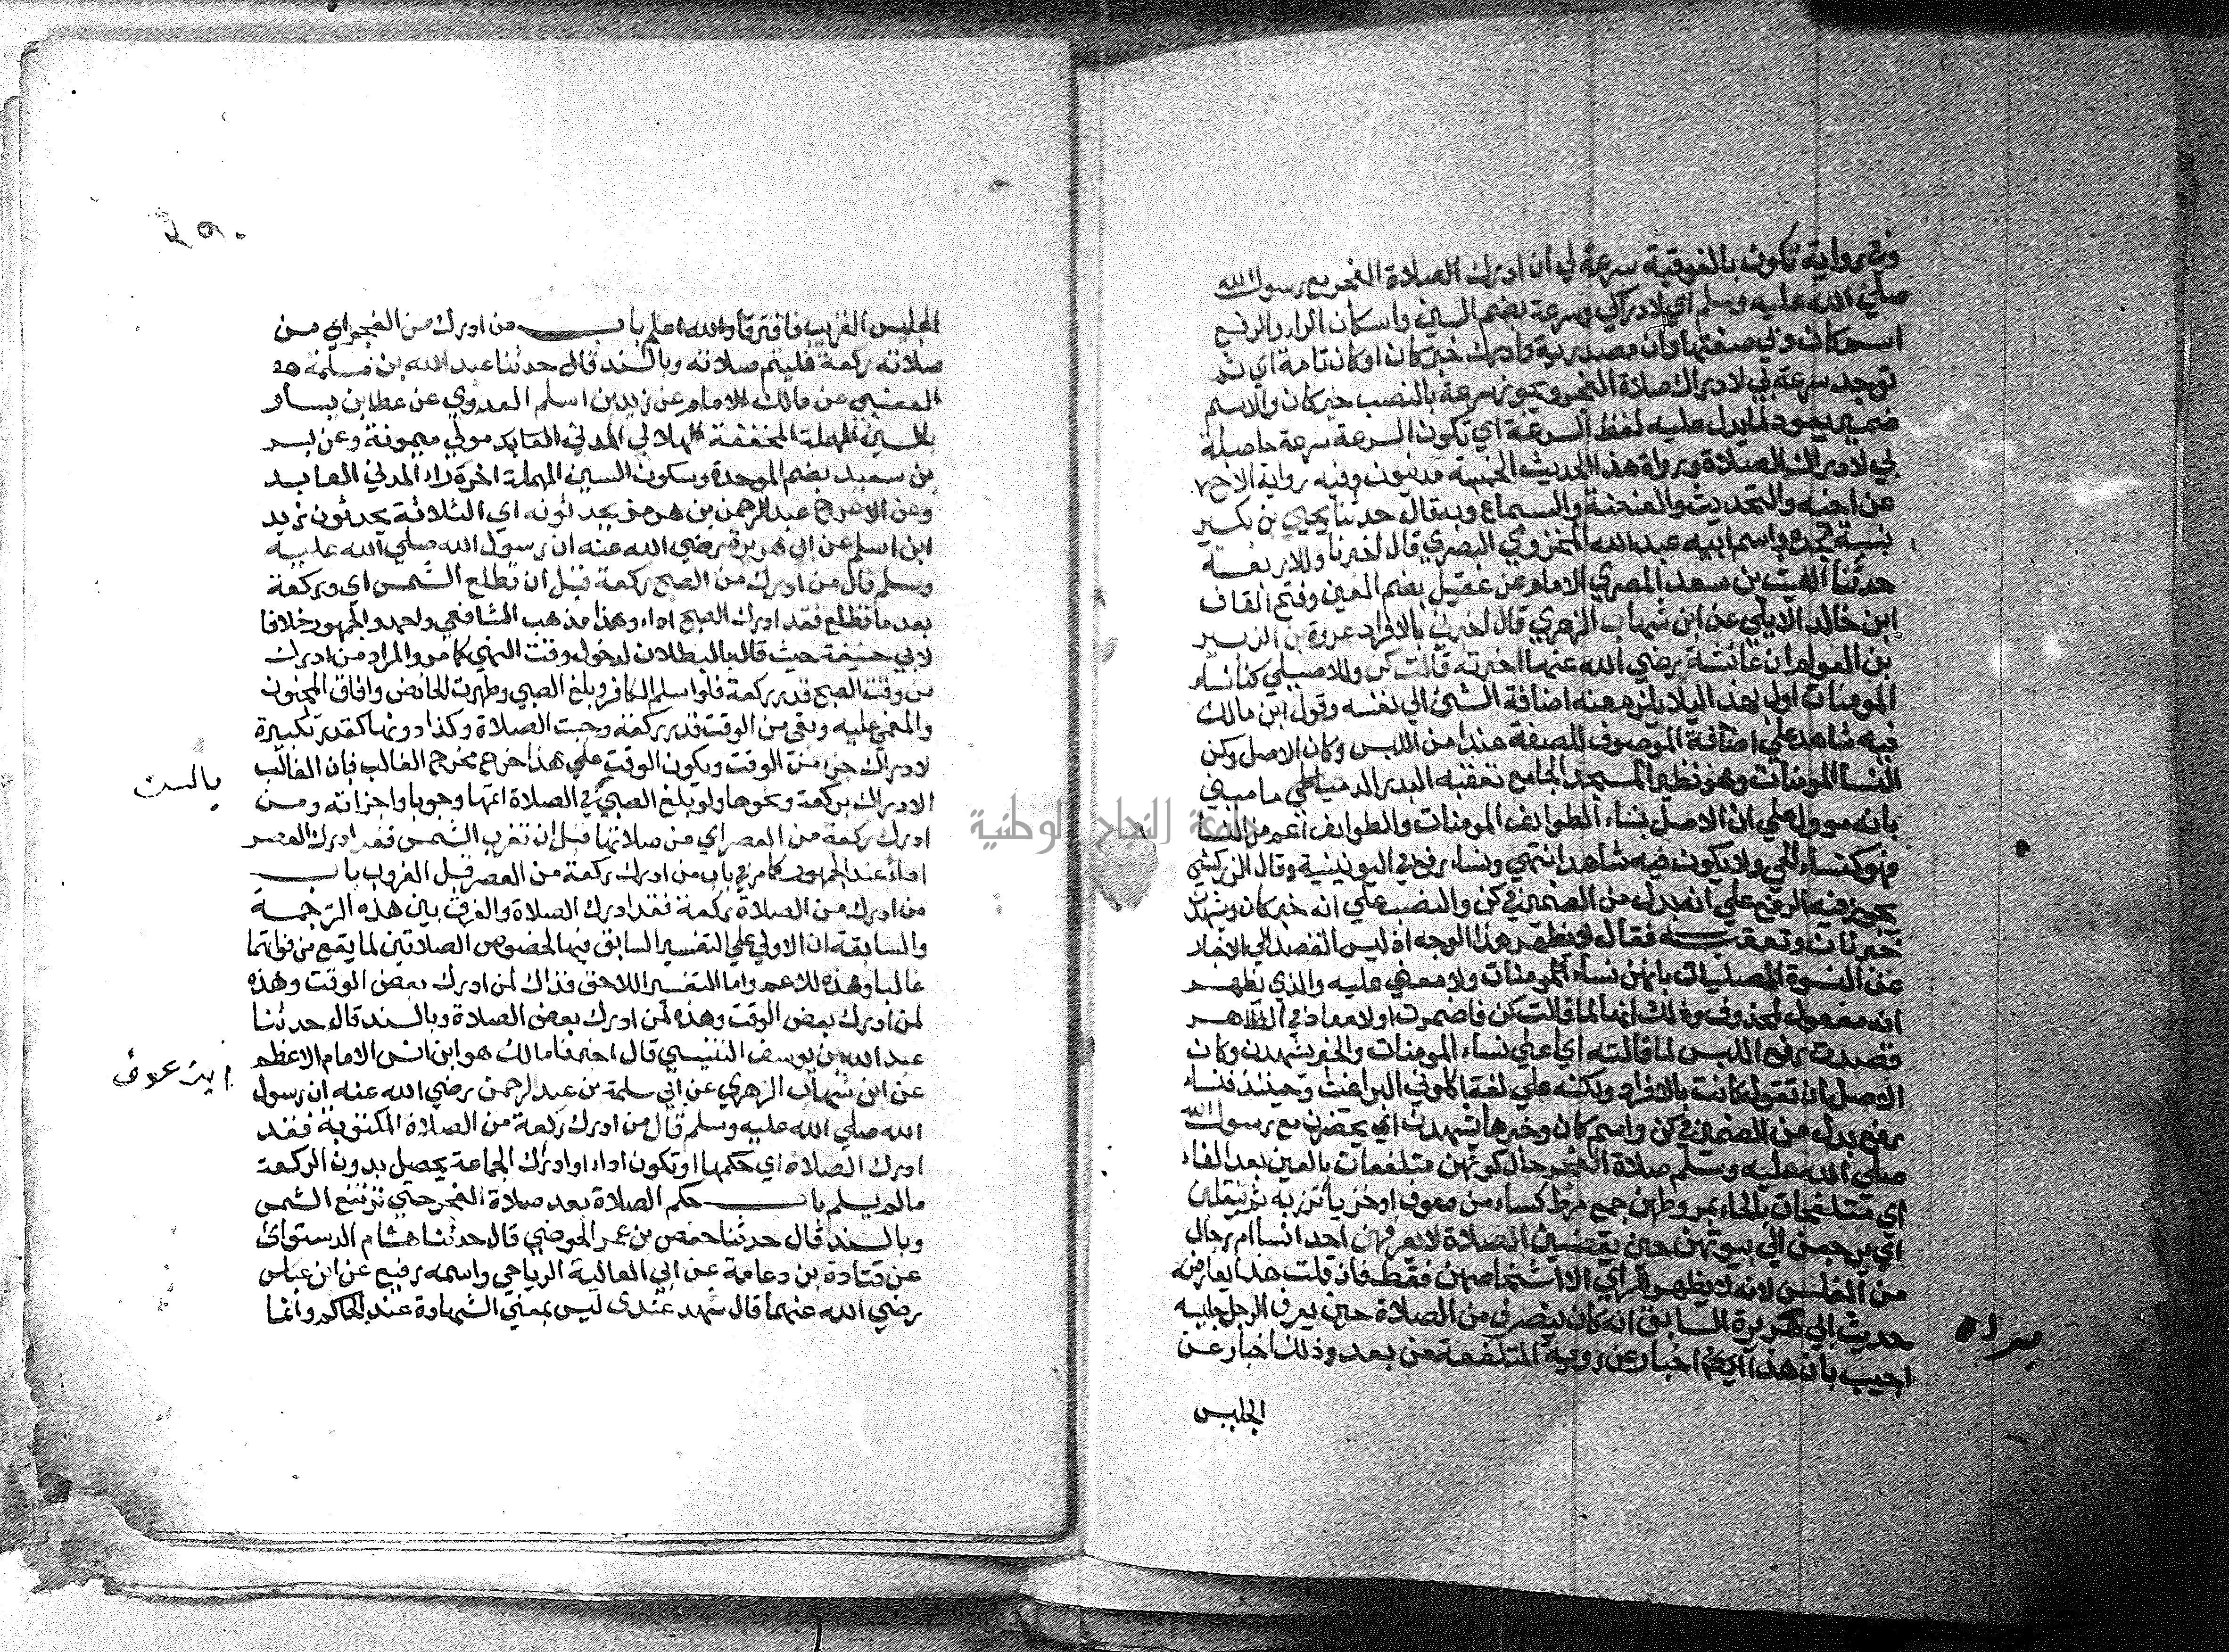 وفي رواية تكون بالفوقية سرعة لي ان ادرك الصلاة الفجر مع رسول الله
صلي الله عليه وسلم اي لادراكي وسرعة بضم السين واسكان الراء والرفع
اسم كان وفي صفتها وان مصدرية وادرك خبر كان او كان تامة اي ثم
توجد سرعة بي لادراك صلاة الفجر ويجوز سرعة بالنصب خبر كان والاسم
ضمير يعود لما يدل عليه لفظ السرعة اي تكون السرعة سرعة حاصلة
لي لادراك الصلاة ورواة هذا الحديث الخمسة مدنيون وفيه رواية الاخ
عن اخيه والتحديث والعنعنة والسماع وبه قال حدثنا يحيي بن بكير
نسبة لجده واسم ابيه عبد الله المخزومي البصري قال اخبرنا وللاربعة
حدثنا الليث بن سعد المصري الامام عن عقيل بضم العين وفتح القاف
ابن خالد الايلي عن ابن شهاب الزهري قال اخبرني بالافراد عروة بن الزبير
بن العوام ان عائشة رضي الله عنها اخبرته قالت كن وللاصيلي كنا نساء
المومنات اول بهذا ليلا يلزم منه اضافة الشئ الي نفسه وقول ابن مالك
فيه شاهد علي اضافة الموصوف للصفة عند امن اللبس وكان الاصل وكن
النسا المومنات وهو نظير المسجد الجامع تعقبه البدر الدماميني
بانه موول علي ان الاصل نساء الطوايف المومنات والطوايف اعم من النسا
فهو كنساء الحي ولا يكون فيه شاهد انتهي ونساء رفع في اليونينية وقال الزركشي
يجوز فيه الرفع علي انه بدل من الضمير في كن والنصب علي انه خبر كان ويشهدن
خبر ثان وتعقب فقال لا يظهر هذا الوجه اذ ليس القصد الي الاخبار
عن النسوة المصليات بانهن نساء المومنات ولا معني عليه والذي يظهر
انه مفعول لمحذوف وذلك انها لما قالت كن فاضمرت ولا معاد في الظاهر
قصدت رفع اللبس لما قالته اي اعني نساء المومنات والخبر يشهدن وكان
الاصل ان تقول كانت بالافراد ولكنه علي لغة اكلوني البراغيث وحينئذ فنساء
رفع بدل من الضمير في كن واسم كان وخبرها يشهدن اي يحضرن مع رسول الله
صلي الله عليه وسلم صلاة الفجر حال كونهن متلفعات بالعين بعد الفاء
اي متلفحات بالحاء بمروطهن جمع مرط كساء من صوف او خز يأتزر به ثم ينقلبن
اي يرجعن الي بيوتهن حين يقضين الصلاة لا يعرفهن احد انسا ام رجال
من الغلس لانه لا يظهر للراي الا اشخاصهن فقط فان قلت هذا يعارضه
حديث ابي هريرة السابق انه كان ينصرف من الصلاة حين يعرف الرجل جليسه
اجيب بان هذا اخبار عن روية المتلفعة من بعد وذلك اخبار عن
الجليس
٢٩٠
الجليس القريب فافترقا والله اعلم باب من ادرك من الفجر اي من
صلاته ركعة فليتم صلاته وبالسند قال حدثنا عبد الله بن مسلمة
القعنبي عن مالك الامام عن زيد بن اسلم العدوي عن عطا بن يسار
بالسين المهملة المخففة الهلالي المدني العابد مولي ميمونة وعن بسر
بن سعيد بضم الموحدة وسكون السين المهملة اخره راء المدني العابد
وعن الاعرج عبد الرحمن بن هرمز يحدثونه اي الثلاثة يحدثون زيد
ابن اسلم عن ابي هريرة رضي الله عنه ان رسول الله صلي الله عليه
وسلم قال من ادرك من الصبح ركعة قبل ان تطلع الشمس اي وركعة
بعد ما تطلع فقد ادرك الصبح اداء وهذا مذهب الشافعي واحمد والجمهور خلافا
لابي حنيفة حيث قال بالبطلان لدخول وقت النهي كما مر والمراد من ادرك
من وقت الصبح قدر ركعة فلو اسلم الكافر وبلغ الصبي وطهرت الحائض وافاق المجنون
والمغمي عليه وبقي من الوقت قدر ركعة وجبت الصلاة وكذا دونها كقدر تكبيرة
لادراك جزء من الوقت ويكون الوقت علي هذا خرج مخرج الغالب فان الغالب
الادراك بركعة ونحوها ولو بلغ الصبي في الصلاة اتمها وجوبا واجزاته ومن
بالسن
ادرك ركعة من العصر اي من صلاتها قبل ان تغرب الشمس فقد ادرك العصر
اداء عند الجمهور كما مر في باب من ادرك ركعة من العصر قبل الغروب باب
من ادرك من الصلاة ركعة فقد ادرك الصلاة والفرق بين هذه الترجمة
والسابقة ان الاولي علي التفسير السابق فيها لخصوص الصلاتين لما يقع من فواتهما
غالبا وهذه للاعم واما التفسير اللاحق فذاك لمن ادرك بعض الوقت وهذه
لمن ادرك بعض الوقت وهذه لمن ادرك بعض الصلاة وبالسند قال حدثنا
عبد الله بن يوسف التنيسي قال اخبرنا مالك هو ابن انس الامام الاعظم
عن ابن شهاب الزهري عن ابي سلمة بن عبد الرحمن رضي الله عنه ان رسول
ابن عوف
الله صلي الله عليه وسلم قال من ادرك ركعة من الصلاة المكتوبة فقد
ادرك الصلاة اي حكمها او تكون اداء او ادرك الجماعة يحصل بدون الركعة
ما لم يسلم باب حكم الصلاة بعد صلاة الفجر حتي ترتفع الشمس
وبالسند قال حدثنا حفص بن عمر الحوضي قال حدثنا هشام الدستوائ
عن قتادة بن دعامة عن ابي العالية الرياحي واسمه رفيع عن ابن عباس
رضي الله عنهما قال شهد عندي ليس بمعني الشهادة عند الحاكم وانما
جامعة النجاح الوطنية